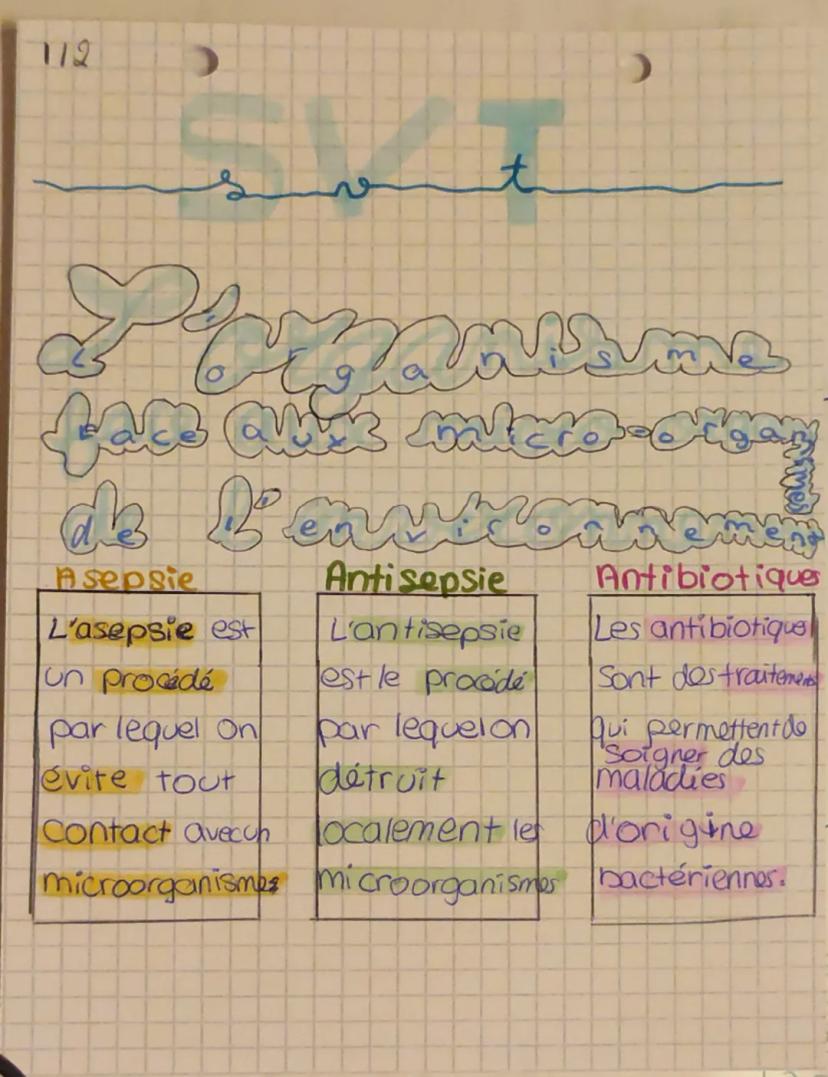 112
SVT
svt
L'organisme
face aux micro-organismes
de l'environnement
Asepsie
L'asepsie est
un procédé
par lequel on
évite tout
contact avec un
microorganismes
Antisepsie
L'antisepsie
est le procédé
par lequel on
détruit
localement les
microorganismes
Antibiotiques
Les antibiotiques
sont des traitements
qui permettent de
soigner des
maladies
d'origine
bactériennes.